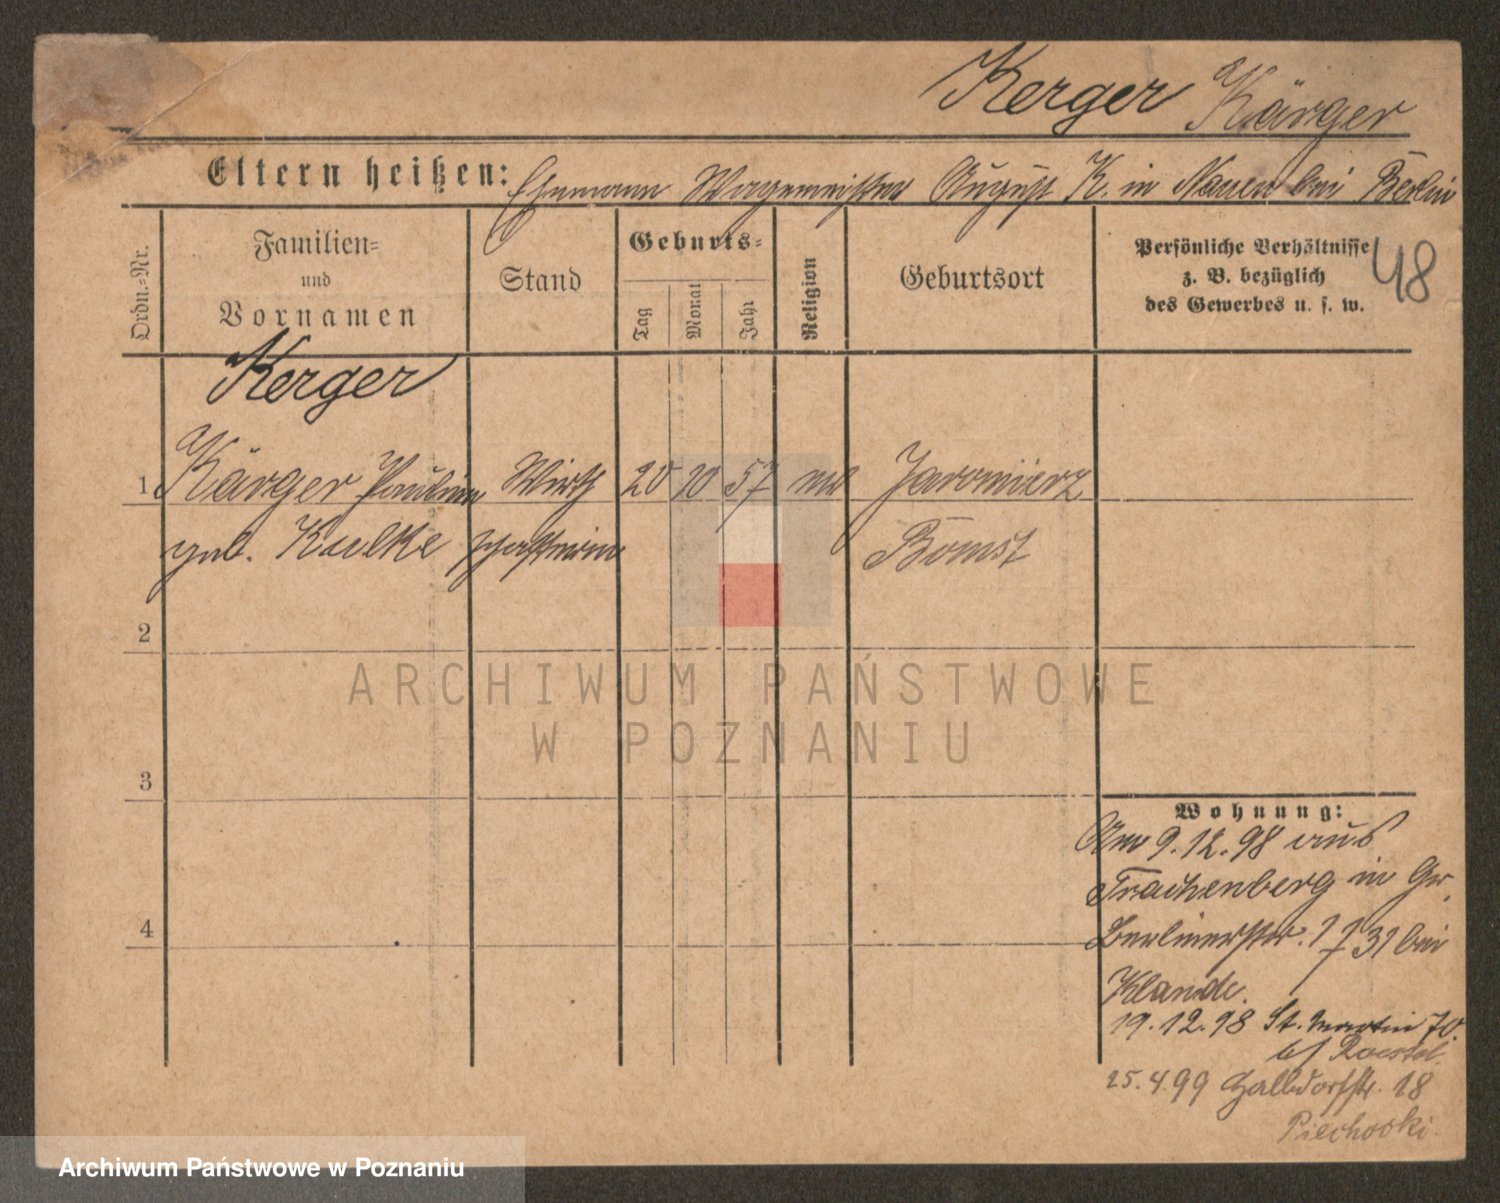 Kerger Kärger
Eltern heißen: Ehemann Wagemeister August K. in Nauen bei Berlin
Ordn.-Nr.
Familien-
und
Vornamen
Stand
Geburts-
Tag
Monat
Jahr
Religion
Geburtsort
Persönliche Verhältnisse
z. B. bezüglich
des Gewerbes u. s. w.
48
Kerger
1 Kärger Pauline Wirth 20 10 57 Jaromierz
geb. Kulke schafterin Bomst
2
3
4
Wohnung:
Am 9.12.98 aus
Trachenberg in Gr.
Berlinerstr. 31 bei
Klande.
19.12.98 St. Martin 70.
bei
25.4.99 Halldorfstr. 18
Piechocki
ARCHIWUM PAŃSTWOWE
W POZNANIU
Archiwum Państwowe w Poznaniu